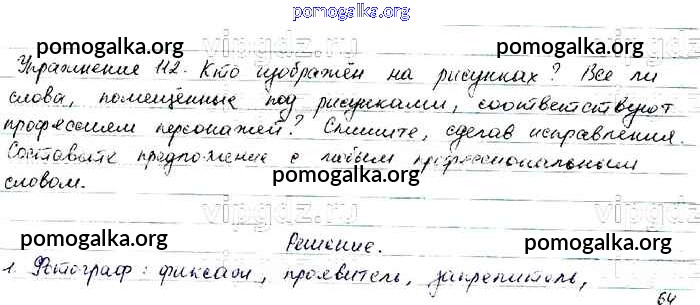 pomogalka.org
Упражнение 112. Кто изображён на рисунках? Все ли
слова, помещённые под рисунками, соответствуют
профессиям персонажей? Спишите, сделав исправления.
Составьте предложение с любым профессиональным
словом.
Решение.
1. Фотограф: фиксаж, проявитель, закрепитель,
64
pomogalka.org
pomogalka.org
pomogalka.org
pomogalka.org
pomogalka.org
pomogalka.org
pomogalka.org
vipgdz.ru
vipgdz.ru